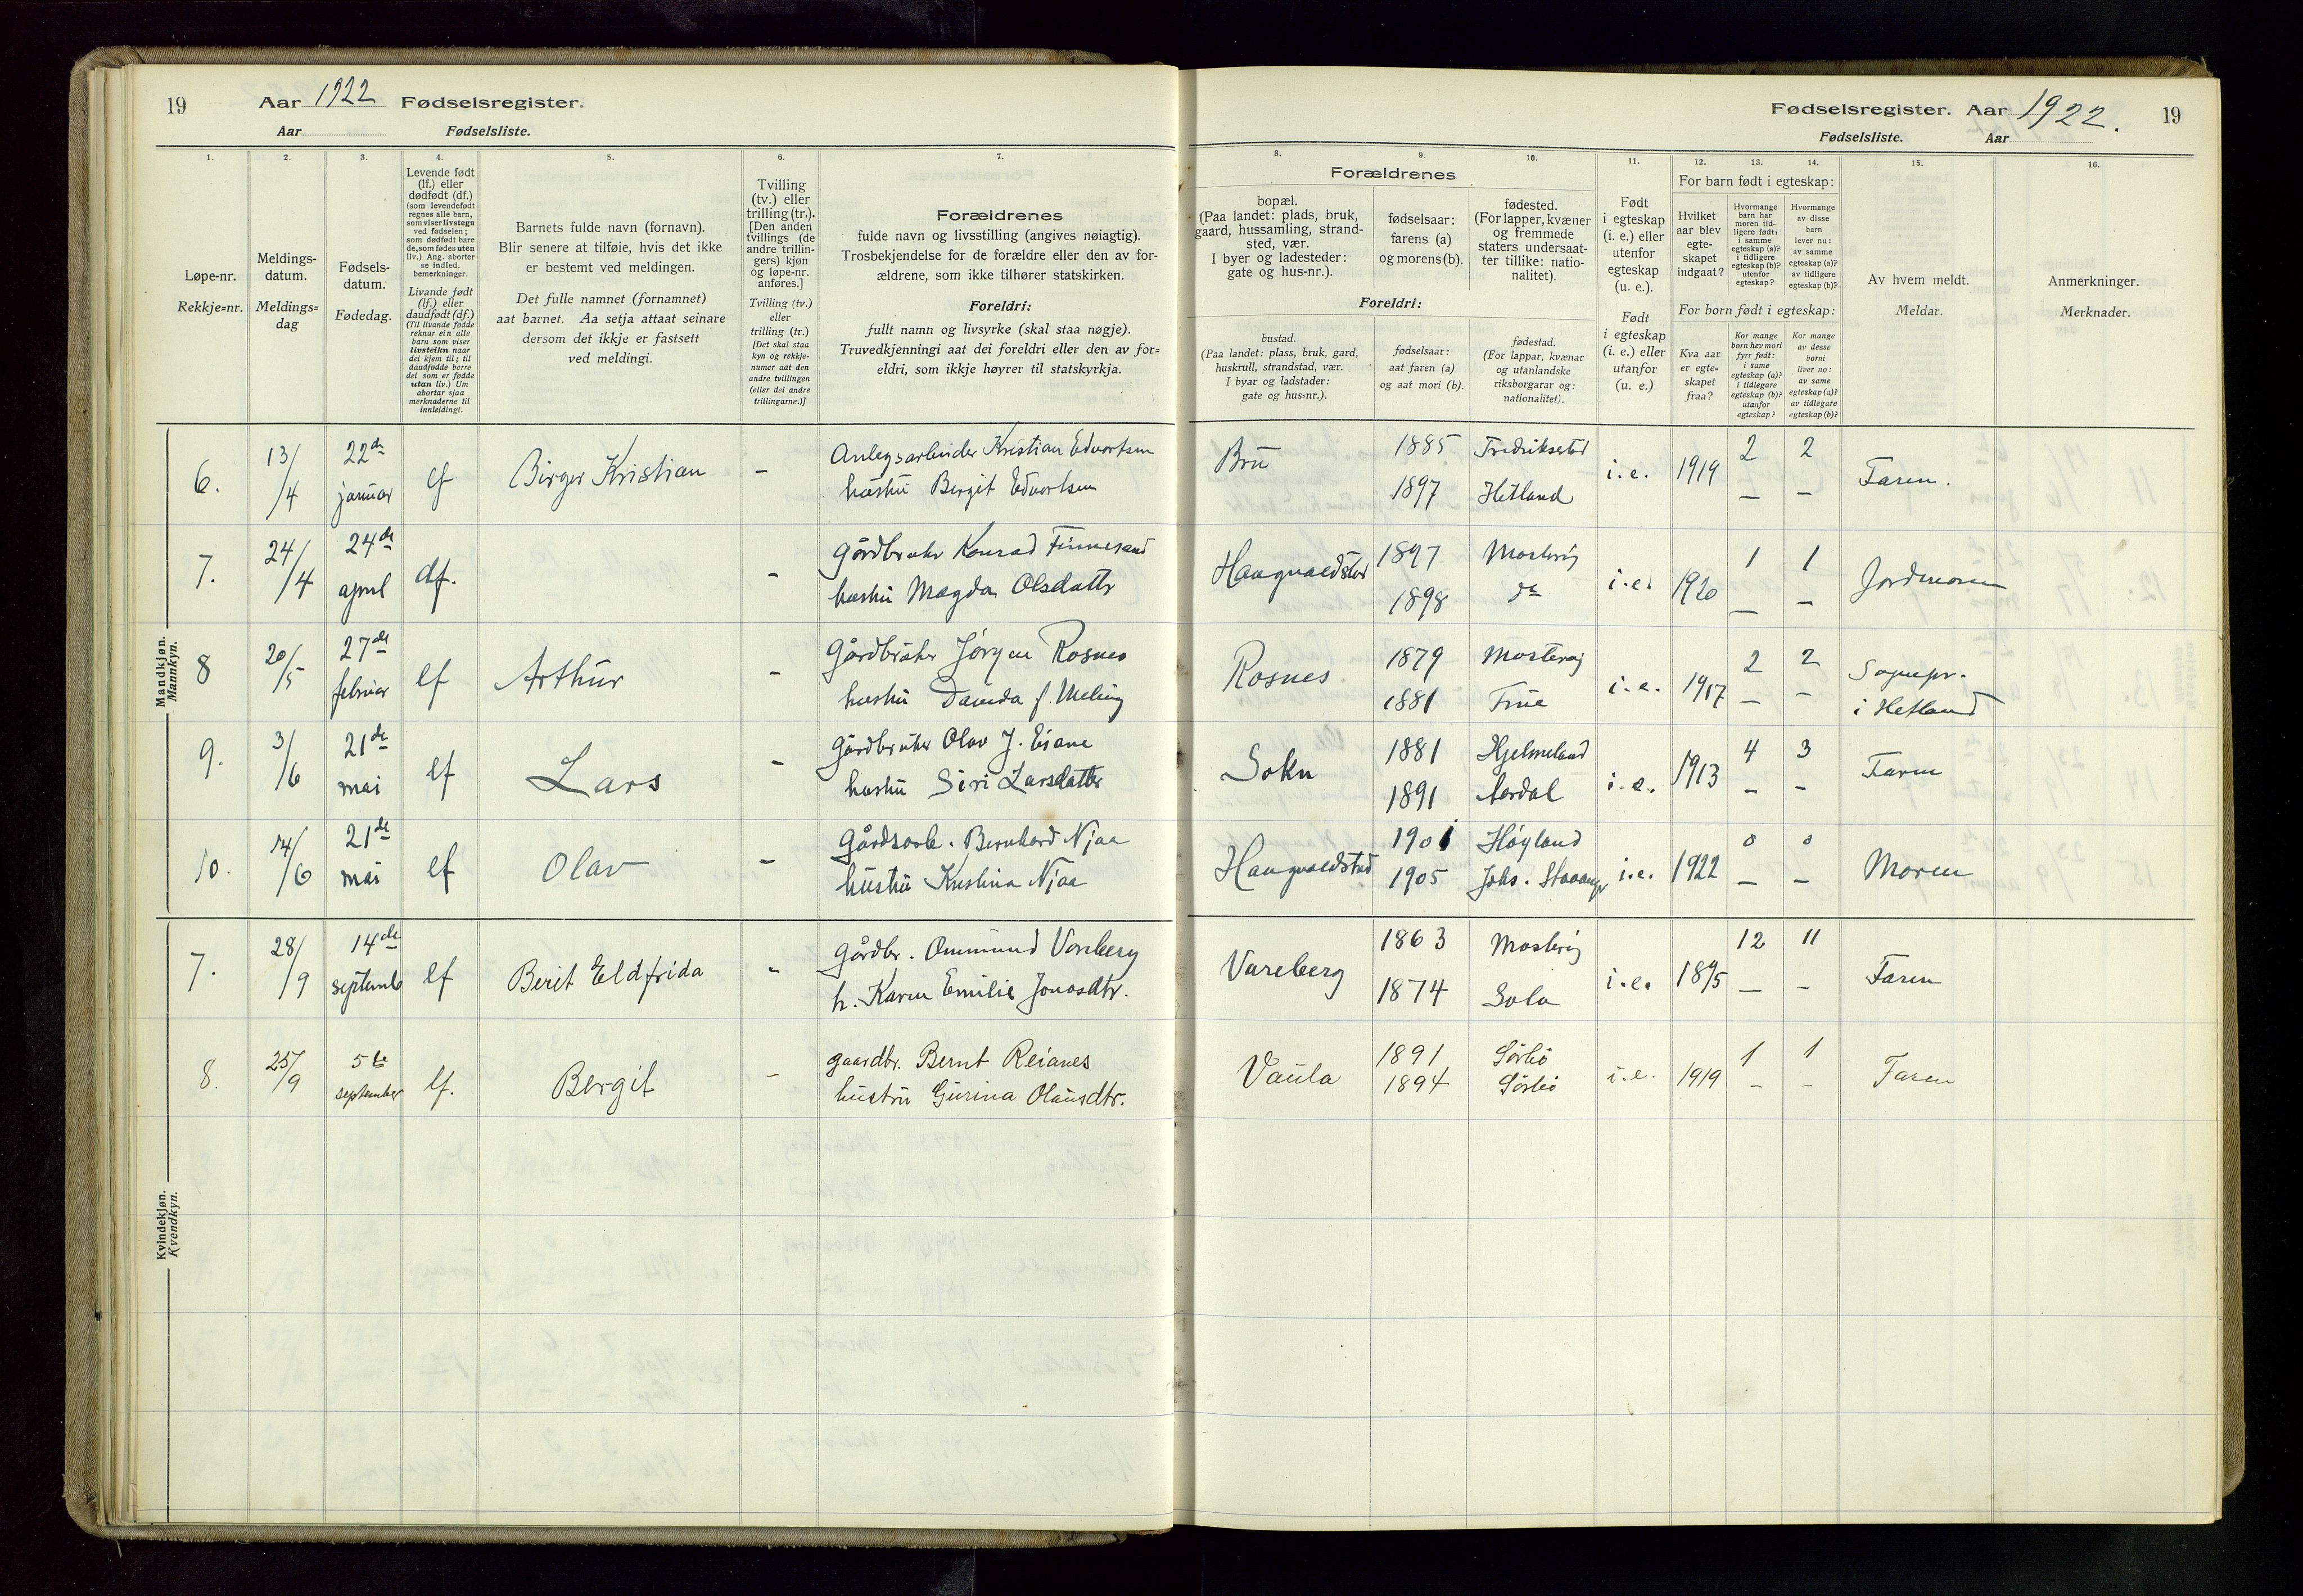 19 Aar 1922 Fødselsregister.
Aar Fødselsliste.
Fødselsregister. Aar 1922. 19
Fødselsliste. Aar
1. 2. 3. 4. 5. 6. 7.
Løpe-nr.
Rekkje=nr.
Meldings-
datum.
Meldings=
dag
Fødsels-
datum.
Fødedag.
Levende født
(lf.) eller
dødfødt (df.)
(som levendefødt
regnes alle barn,
som viser livstegn
ved fødselen;
som dødfødt bare
de, som fødes uten
liv.) Ang. aborter
se indled.
bemerkninger.
Livande født
(lf.) eller
daudfødt (df.)
(Til livande fødde
reknar ein alle
barn som viser
livsteikn naar
dei kjem til; til
daudfødde berre
dei som er fødde
utan liv.) Um
abortar sjaa
merknaderne til
innleidingi.
Barnets fulde navn (fornavn).
Blir senere at tilføie, hvis det ikke
er bestemt ved meldingen.
Det fulle namnet (fornamnet)
aat barnet. Aa setja attaat seinare
dersom det ikkje er fastsett
ved meldingi.
Tvilling
(tv.) eller
trilling (tr.).
[Den anden
tvillings (de
andre trillin-
gers) kjøn
og løpe-nr.
anføres.]
Tvilling (tv.)
eller
trilling (tr.)
[Det skal staa
kyn og rekkje-
numer aat den
andre tvillingen
(eller dei andre
trillingarne.)]
Forældrenes
fulde navn og livsstilling (angives nøiagtig).
Trosbekjendelse for de forældre eller den av for-
ældrene, som ikke tilhører statskirken.
Foreldri:
fullt namn og livsyrke (skal staa nøgje).
Truvedkjenningi aat dei foreldri eller den av for=
eldri, som ikkje høyrer til statskyrkja.
8. 9. 10. 11. 12. 13. 14. 15. 16.
Forældrenes
bopæl.
(Paa landet: plads, bruk,
gaard, hussamling, strand-
sted, vær.
I byer og ladesteder:
gate og hus-nr.).
fødselsaar:
farens (a)
og morens (b).
fødested.
(For lapper, kvæner
og fremmede
staters undersaat-
ter tillike: natio-
nalitet).
Foreldri:
bustad.
(Paa landet: plass, bruk, gard,
huskrull, strandstad, vær.
I byar og ladstader:
gate og hus=nr.).
fødselsaar:
aat faren (a)
og aat mori (b).
fødestad.
(For lappar, kvænar
og utanlandske
riksborgarar og:
nationalitet).
Født
i egteskap
(i. e.) eller
utenfor
egteskap
(u. e.).
Født
i egteskap
(i. e.) eller
utanfor
(u. e.)
For barn født i egteskap:
Hvilket
aar blev
egte-
skapet
indgaat?
Hvormange
barn har
moren tid-
ligere født:
i samme
egteskap (a)?
i tidligere
egteskap (b)?
utenfor
egteskap?
Hvormange
av disse
barn
lever nu:
av samme
egteskap (a)?
av tidligere
egteskap (b)?
For born født i egteskap:
Kva aar
er egte=
skapet
fraa?
Kor mange
born hev mori
fyrr født:
i same
egteskap (a)?
i tidlegare
egteskap (b)?
utanfor
egteskap?
Kor mange
av desse
borni
liver no:
av same
egteskap (a)?
av tidlegare
egteskap (b)?
Av hvem meldt.
Meldar.
Anmerkninger.
Merknader.
Mandkjøn.
Mannkyn.
6. 13/4 22de januar lf Birger Kristian – Anlegsarbeider Kristian Edvartsen
hustru Bergit Edvartsen
Bru 1885 Fredrikstad i.e. 1919 2 2 Faren.
1897 Hetland – –
7. 24/4 24de april df. – Gårdbruker Konrad Finnesand
hustru Magda Olsdattr
Haugvaldstad 1897 Mosterøy i.e. 1920 1 1 Jordmoren
1898 do – –
8 20/5 27de februar lf Arthur – Gårdbruker Jørgen Rosnes
hustru Davida f. Meling
Rosnes 1879 Mosterøy i.e. 1917 2 2 Sognepr.
1881 Tjue – – i Hetland
9. 3/6 21de mai lf Lars – Gårdbruker Olav J. Eiane
hustru Siri Larsdatter
Sokn 1881 Hjelmeland i.e. 1913 4 3 Faren
1891 Aardal – –
10. 14/6 21de mai lf Olav – Gårdsarb. Bernhard Njaa
hustru Kristina Njaa
Haugvaldstad 1901 Høyland i.e. 1922 0 0 Moren
1905 Johs. Stavanger – –
Kvindekjøn.
Kvendkyn.
7. 28/9 14de septemb lf Berit Eldfrida – Gårdbr. Ommund Vareberg
h. Karen Emilie Jonasdtr.
Vareberg 1863 Mosterøy i.e. 1895 12 11 Faren
1874 Sola – –
8. 25/9 5te september lf. Bergit – gaardbr. Bernt Reianes
hustru Gurina Olausdtr.
Vaula 1891 Sørbø i.e. 1919 1 1 Faren
1894 Sørbø – –